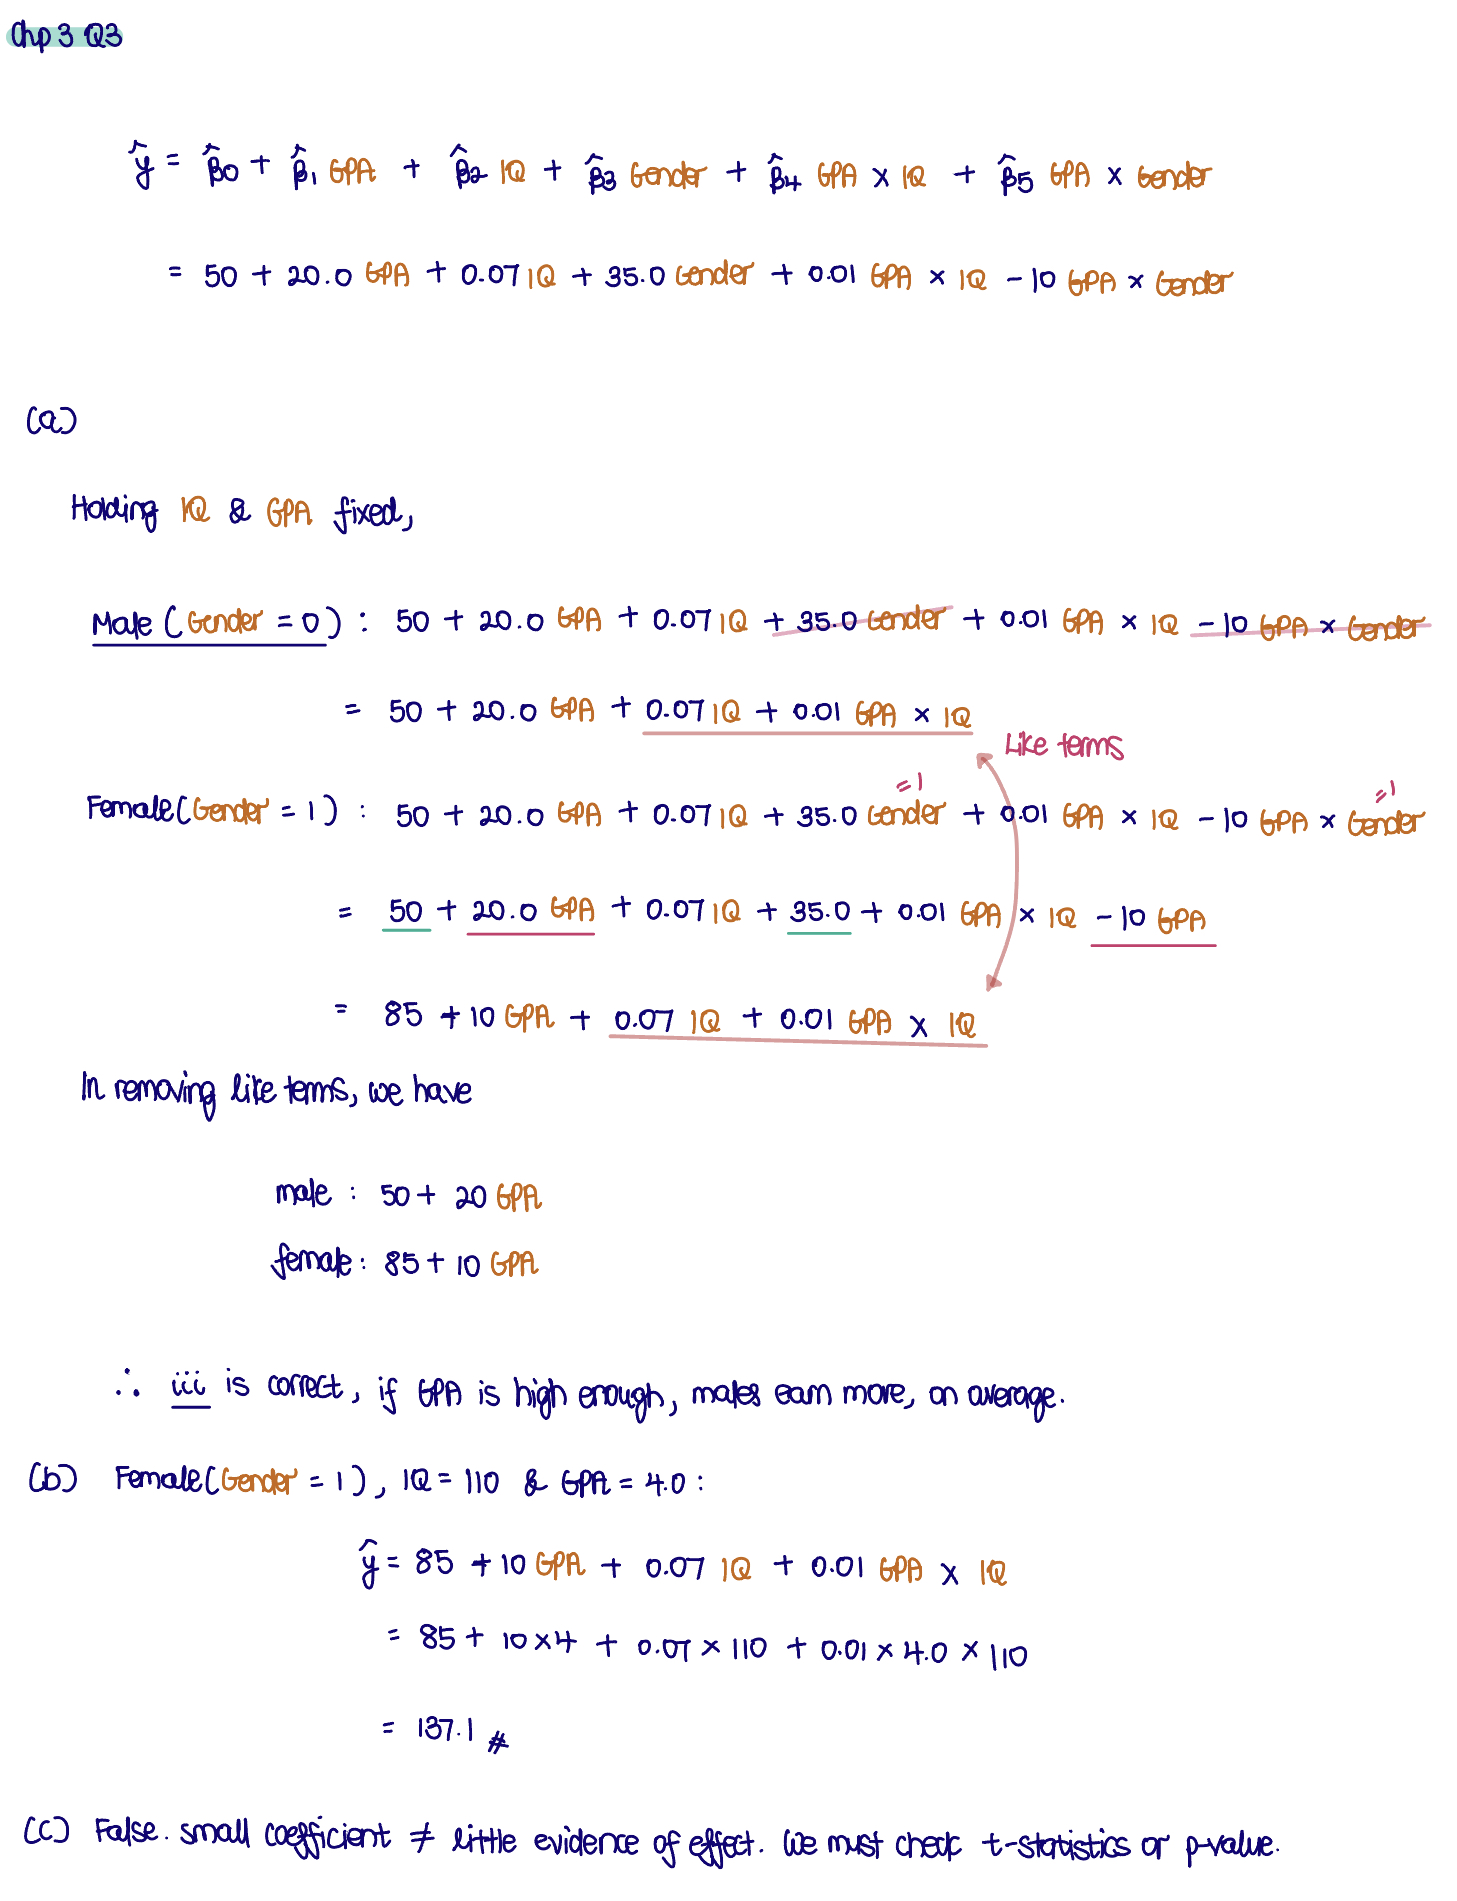 Chp 3 Q3
ŷ = β̂0 + β̂1 GPA + β̂2 IQ + β̂3 Gender + β̂4 GPA × IQ + β̂5 GPA × Gender
= 50 + 20.0 GPA + 0.07 IQ + 35.0 Gender + 0.01 GPA × IQ - 10 GPA × Gender
(a)
Holding IQ & GPA fixed,
Male (Gender = 0) : 50 + 20.0 GPA + 0.07 IQ + 35.0 Gender + 0.01 GPA × IQ - 10 GPA × Gender
= 50 + 20.0 GPA + 0.07 IQ + 0.01 GPA × IQ
Like terms
=1 =1
Female (Gender = 1) : 50 + 20.0 GPA + 0.07 IQ + 35.0 Gender + 0.01 GPA × IQ - 10 GPA × Gender
= 50 + 20.0 GPA + 0.07 IQ + 35.0 + 0.01 GPA × IQ - 10 GPA
= 85 + 10 GPA + 0.07 IQ + 0.01 GPA × IQ
In removing like terms, we have
male : 50 + 20 GPA
female : 85 + 10 GPA
∴ iii is correct, if GPA is high enough, males earn more, on average.
(b) Female (Gender = 1), IQ = 110 & GPA = 4.0 :
ŷ = 85 + 10 GPA + 0.07 IQ + 0.01 GPA × IQ
= 85 + 10 × 4 + 0.07 × 110 + 0.01 × 4.0 × 110
= 137.1 #
(c) False. small coefficient ≠ little evidence of effect. We must check t-statistics or p-value.